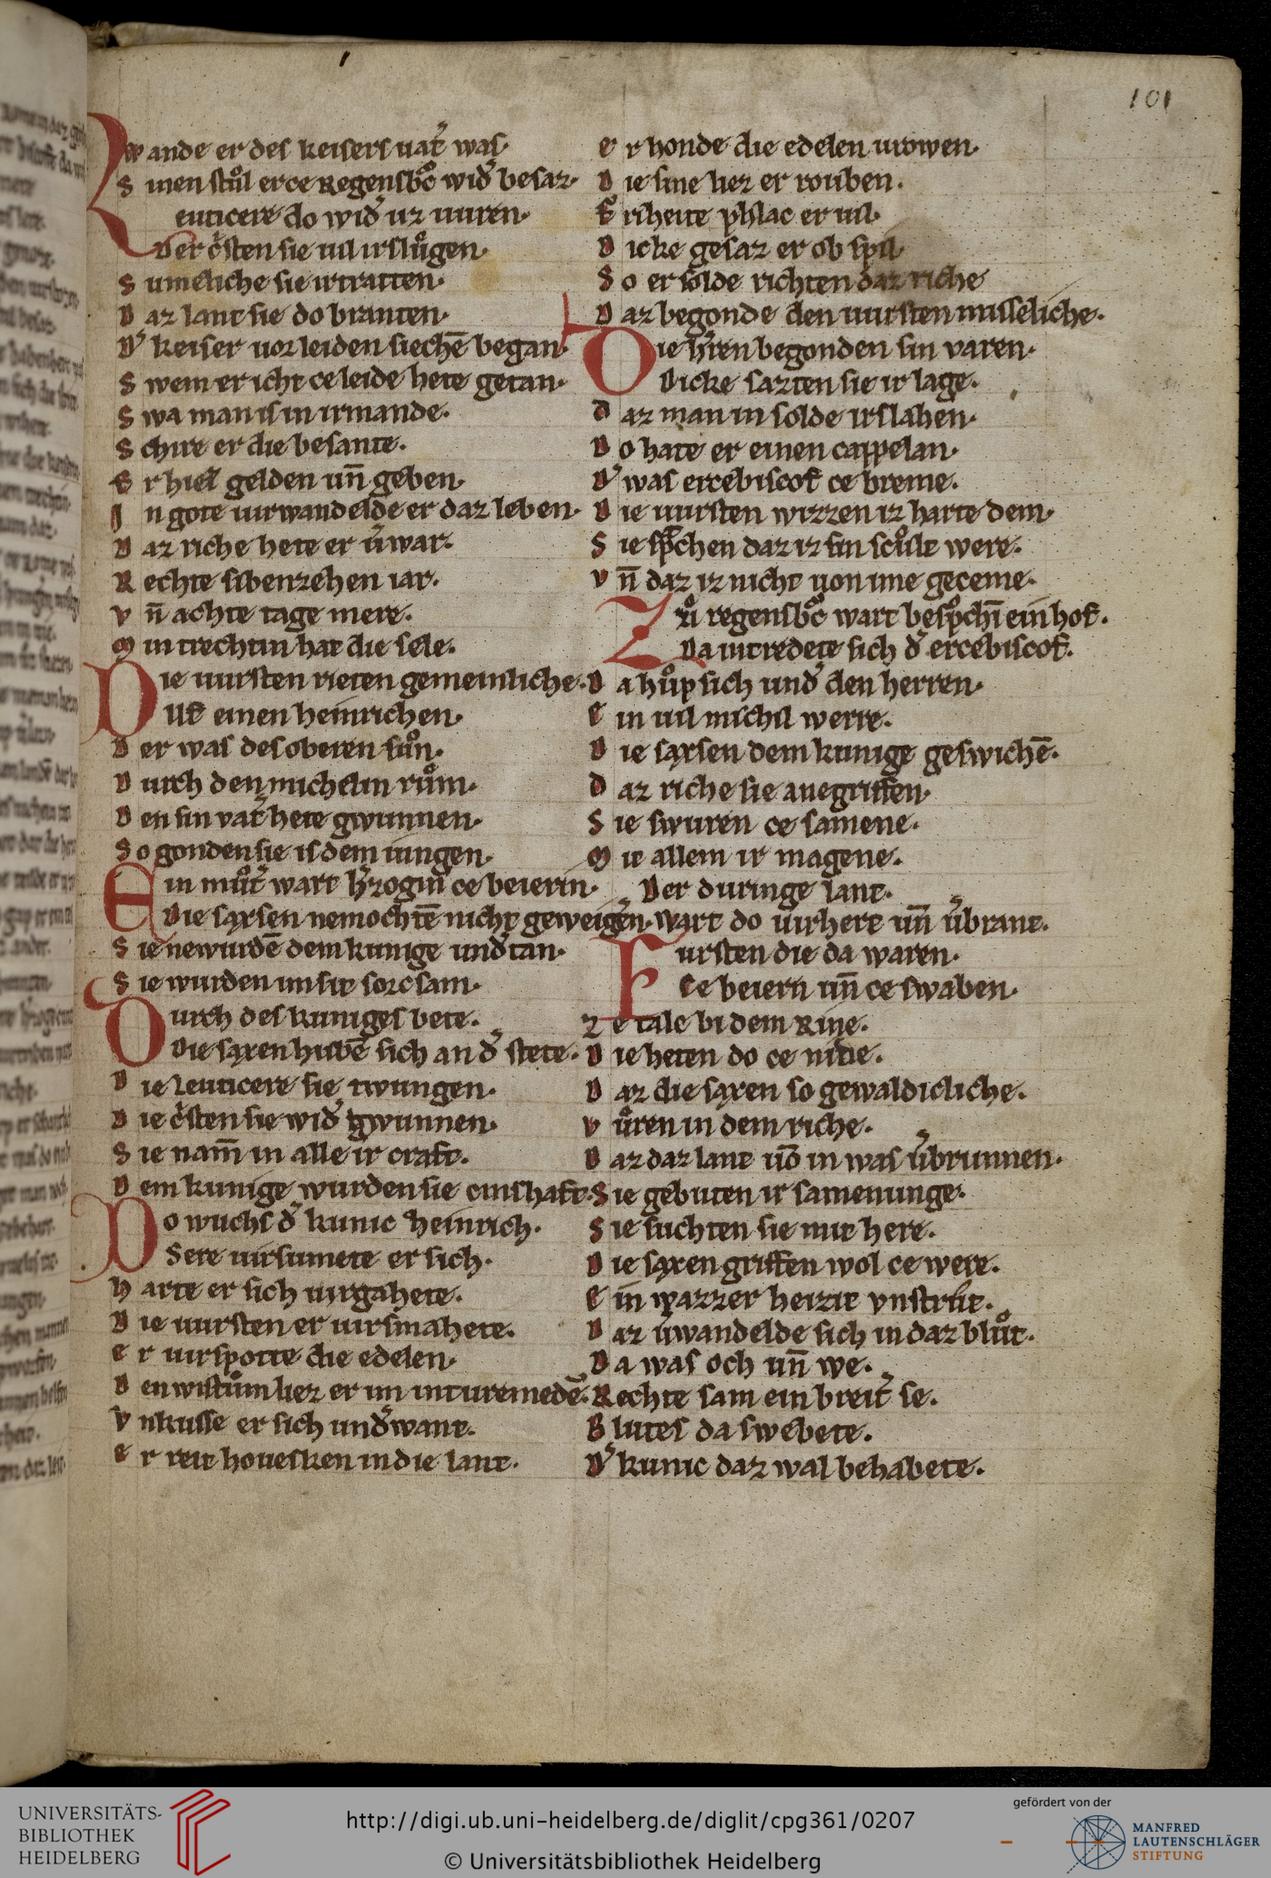 101
Wande er des keisers uat͛ was·
Sinen stůl er ce Regensbc̊ wid͛ besaz·
Leuticere do wid͛ uz uuren·
Der c͛sten sie uil irslůgen·
Sumeliche sie irtratten·
Daz lant sie do branten·
D͛ keiser uor leiden siechē began·
Swem er icht ce leide hete getan·
Swa man is in irmande·
Schire er die besante·
Er hiez gelden un̄ geben·
In gote uirwandelde er daz leben·
Daz riche hete er v͛war·
Rechte sibenzehen iar·
Vn̄ achte tage mere·
Min trechtin hat die sele·
Die uursten rieten gemeinliche·
Uf einen heinrichen·
Der was des oberen sůn·
Durch den michelin rům·
Den sin vat͛ hete gwunnen·
So gonden sie is dem iungen·
Ein můt͛ wart h͛zogin ce beierin·
Die saxsen nemochtē nicht geweigen͛·
Sie newurdē dem kunige und͛tan·
Sie wurden im sit sorcsam·
Durch des kuniges bete·
Die saxen hubē sich an d͛ stete·
Die leuticere sie twungen·
Die c͛sten sie wid͛ gwunnen·
Sie nam̄ in alle ir craft·
Dem kunige wurden sie cinshaft·
Do wuchs d͛ kunic heinrich·
Sere uirsumete er sich·
Harte er sich uirgahete·
Die uursten er uirsmahete·
Er uirspotte die edelen·
Den wistům liez er im inturemedē·
Vnkusse er sich und͛want·
Er reit houesken in die lant·
Er honde die edelen urowen·
Die sine liez er rouben·
Eriheite phlac er uil·
Dicke gesaz er ob spil
So er solde richten daz riche
Daz begonde den uursten misseliche·
Die h͛ren begonden sin varen·
Dicke sazten sie ir lage·
Daz man in solde irslahen·
Do hate er einen cappelan·
D͛ was ercebiscof ce breme·
Die uursten wizzen iz harte dem·
Sie sp͛chen daz iz sin scůlt were·
Vn̄ daz iz nicht uon ime geceme·
Zů regensbc̊ wart besp͛chī ein hof·
Da intredete sich d͛ ercebiscof·
Da hůp sich und͛ den herren·
Ein uil michil werre·
Die saxsen dem kunige geswichē·
Daz riche sie anegriffen·
Sie swuren ce samene·
Mit allem ir magene·
Der duringe lant·
wart do uirhert un̄ v͛brant·
Fursten die da waren·
Ce beiern un̄ ce swaben·
Ze tale bi dem Rine·
Die heten do ce nide·
Daz die saxen so gewaldicliche·
Vůren in dem riche·
Daz daz lant uō in was v͛brunnen·
Sie gebuten ir samenunge·
Sie suchten sie mit here·
Die saxen griffen wol ce were·
Ein wazzer heizit vnstrůt·
Daz v͛wandelde sich in daz blůt·
Da was och un̄ we·
Rechte sam ein breit͛ se·
Blutes da swebete·
D͛ kunic daz wal behabete·
UNIVERSITÄTS-
BIBLIOTHEK
HEIDELBERG
http://digi.ub.uni-heidelberg.de/diglit/cpg361/0207
© Universitätsbibliothek Heidelberg
gefördert von der
MANFRED
LAUTENSCHLÄGER
STIFTUNG